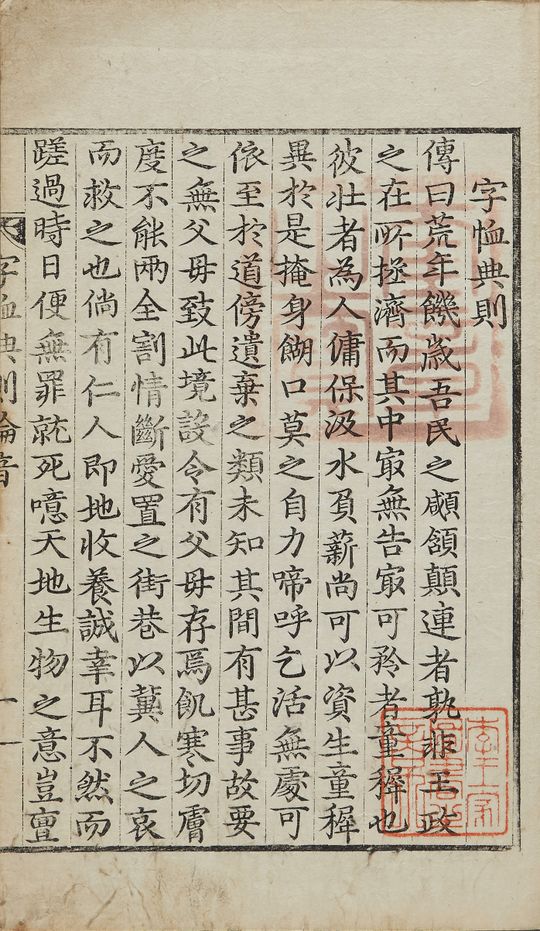 字恤典則
傳曰荒年饑歲吾民之顑頷顛連者孰非王政
之在所拯濟而其中㝡無告㝡可矜者童穉也
彼壯者為人傭保汲水負薪尚可以資生童穉
異於是掩身餬口莫之自力啼呼乞活無處可
依至於道傍遺棄之類未知其間有甚事故要
之無父母致此境設令有父母存焉飢寒切膚
度不能兩全割情斷愛置之街巷以冀人之哀
而救之也倘有仁人即地收養誠幸耳不然而
蹉過時日便無罪就死噫天地生物之意豈亶
字恤典則綸音 一